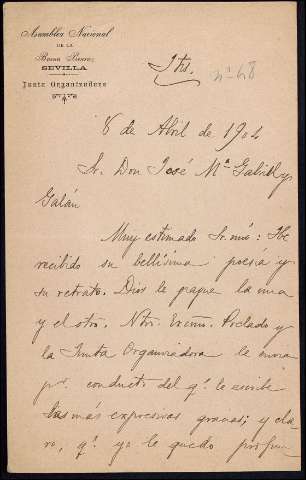 Asamblea Nacional
DE LA
Buena Prensa
SEVILLA
Junta Organizadora
nº 48
8 de Abril de 1904
Sr. Don José Mª Gabriel y
Galán
Muy estimado Sr. mío: He
recibido su bellísima poesía y
su retrato. Dios le pague la una
y el otro. Ntro. Excmo. Prelado y
la Junta Organizadora le envia
pr. conducto del qe. le escribe
las más expresivas gracias; y cla-
ro, qe. yo le quedo profun